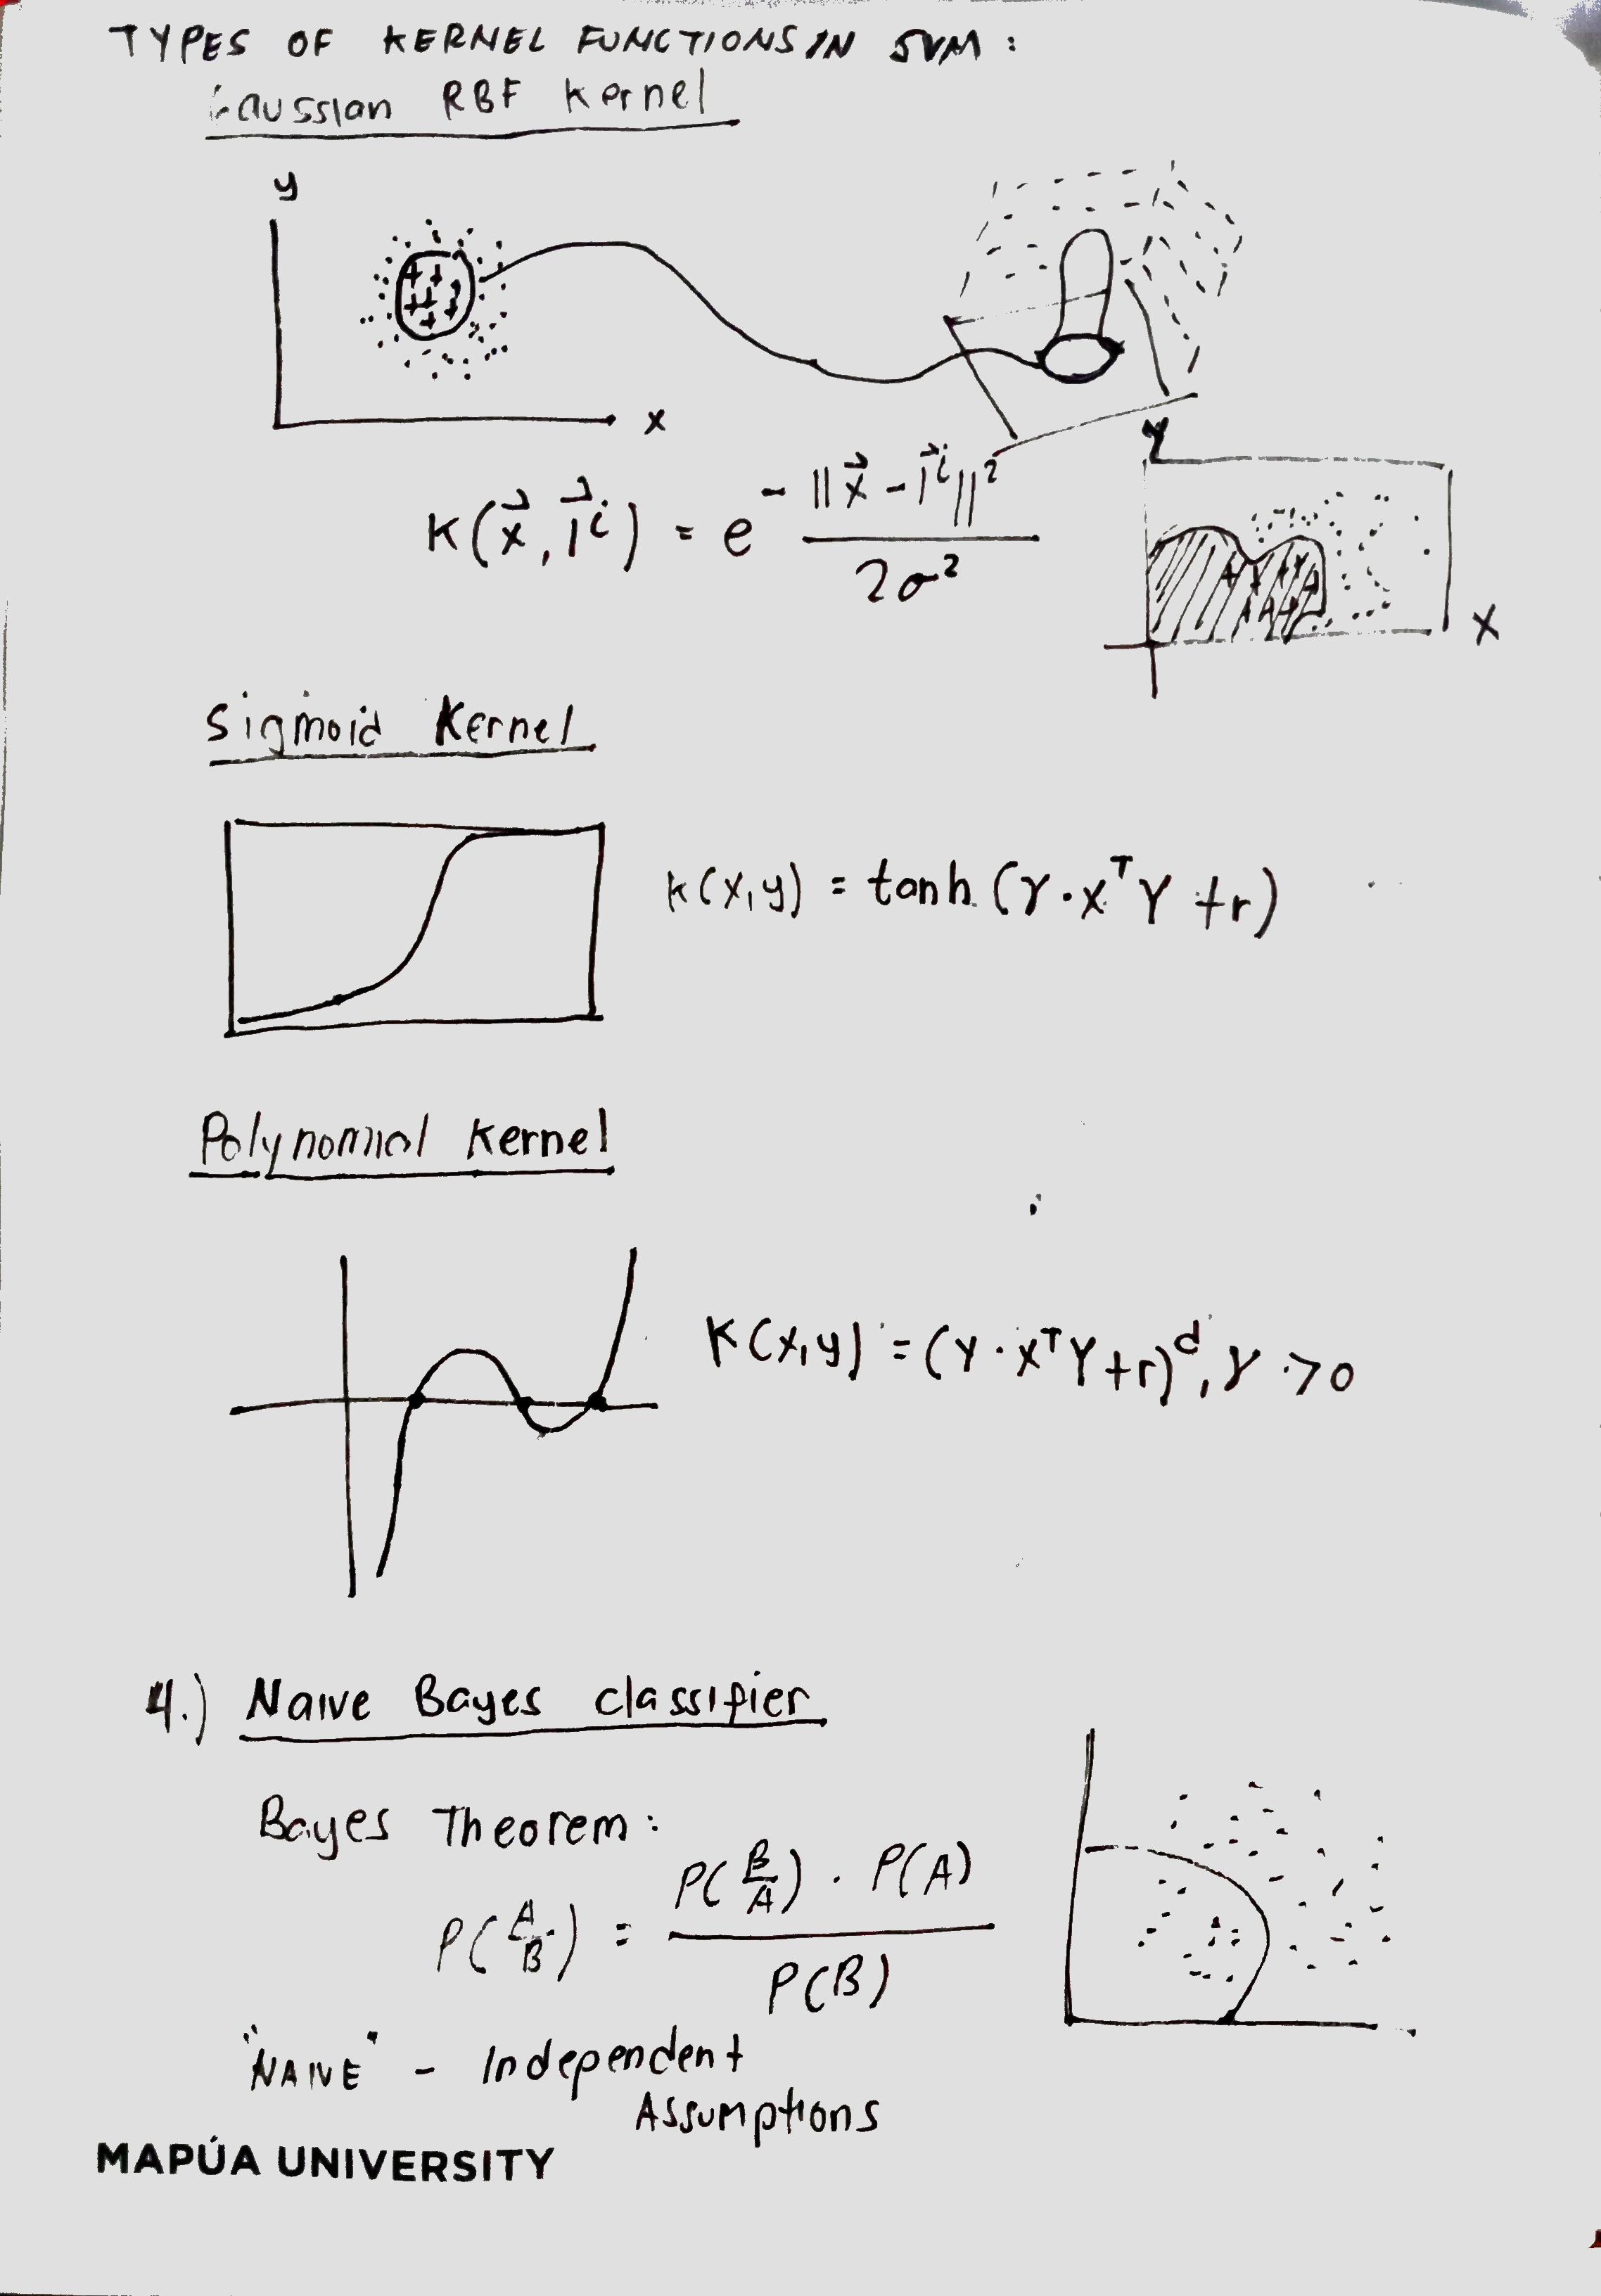 TYPES OF KERNEL FUNCTIONS IN SVM :
Gaussian RBF Kernel
y
x
K(x⃗, l⃗ⁱ) = e^(-||x⃗ - l⃗ⁱ||² / 2σ²)
Y
X
Sigmoid Kernel
K(x,y) = tanh (γ · xᵀY + r)
Polynomial Kernel
K(x,y) = (γ · xᵀY + r)ᵈ, γ > 0
4.) Naive Bayes classifier
Bayes Theorem :
P(A/B) = P(B/A) · P(A) / P(B)
"NAIVE" - Independent
Assumptions
MAPÚA UNIVERSITY